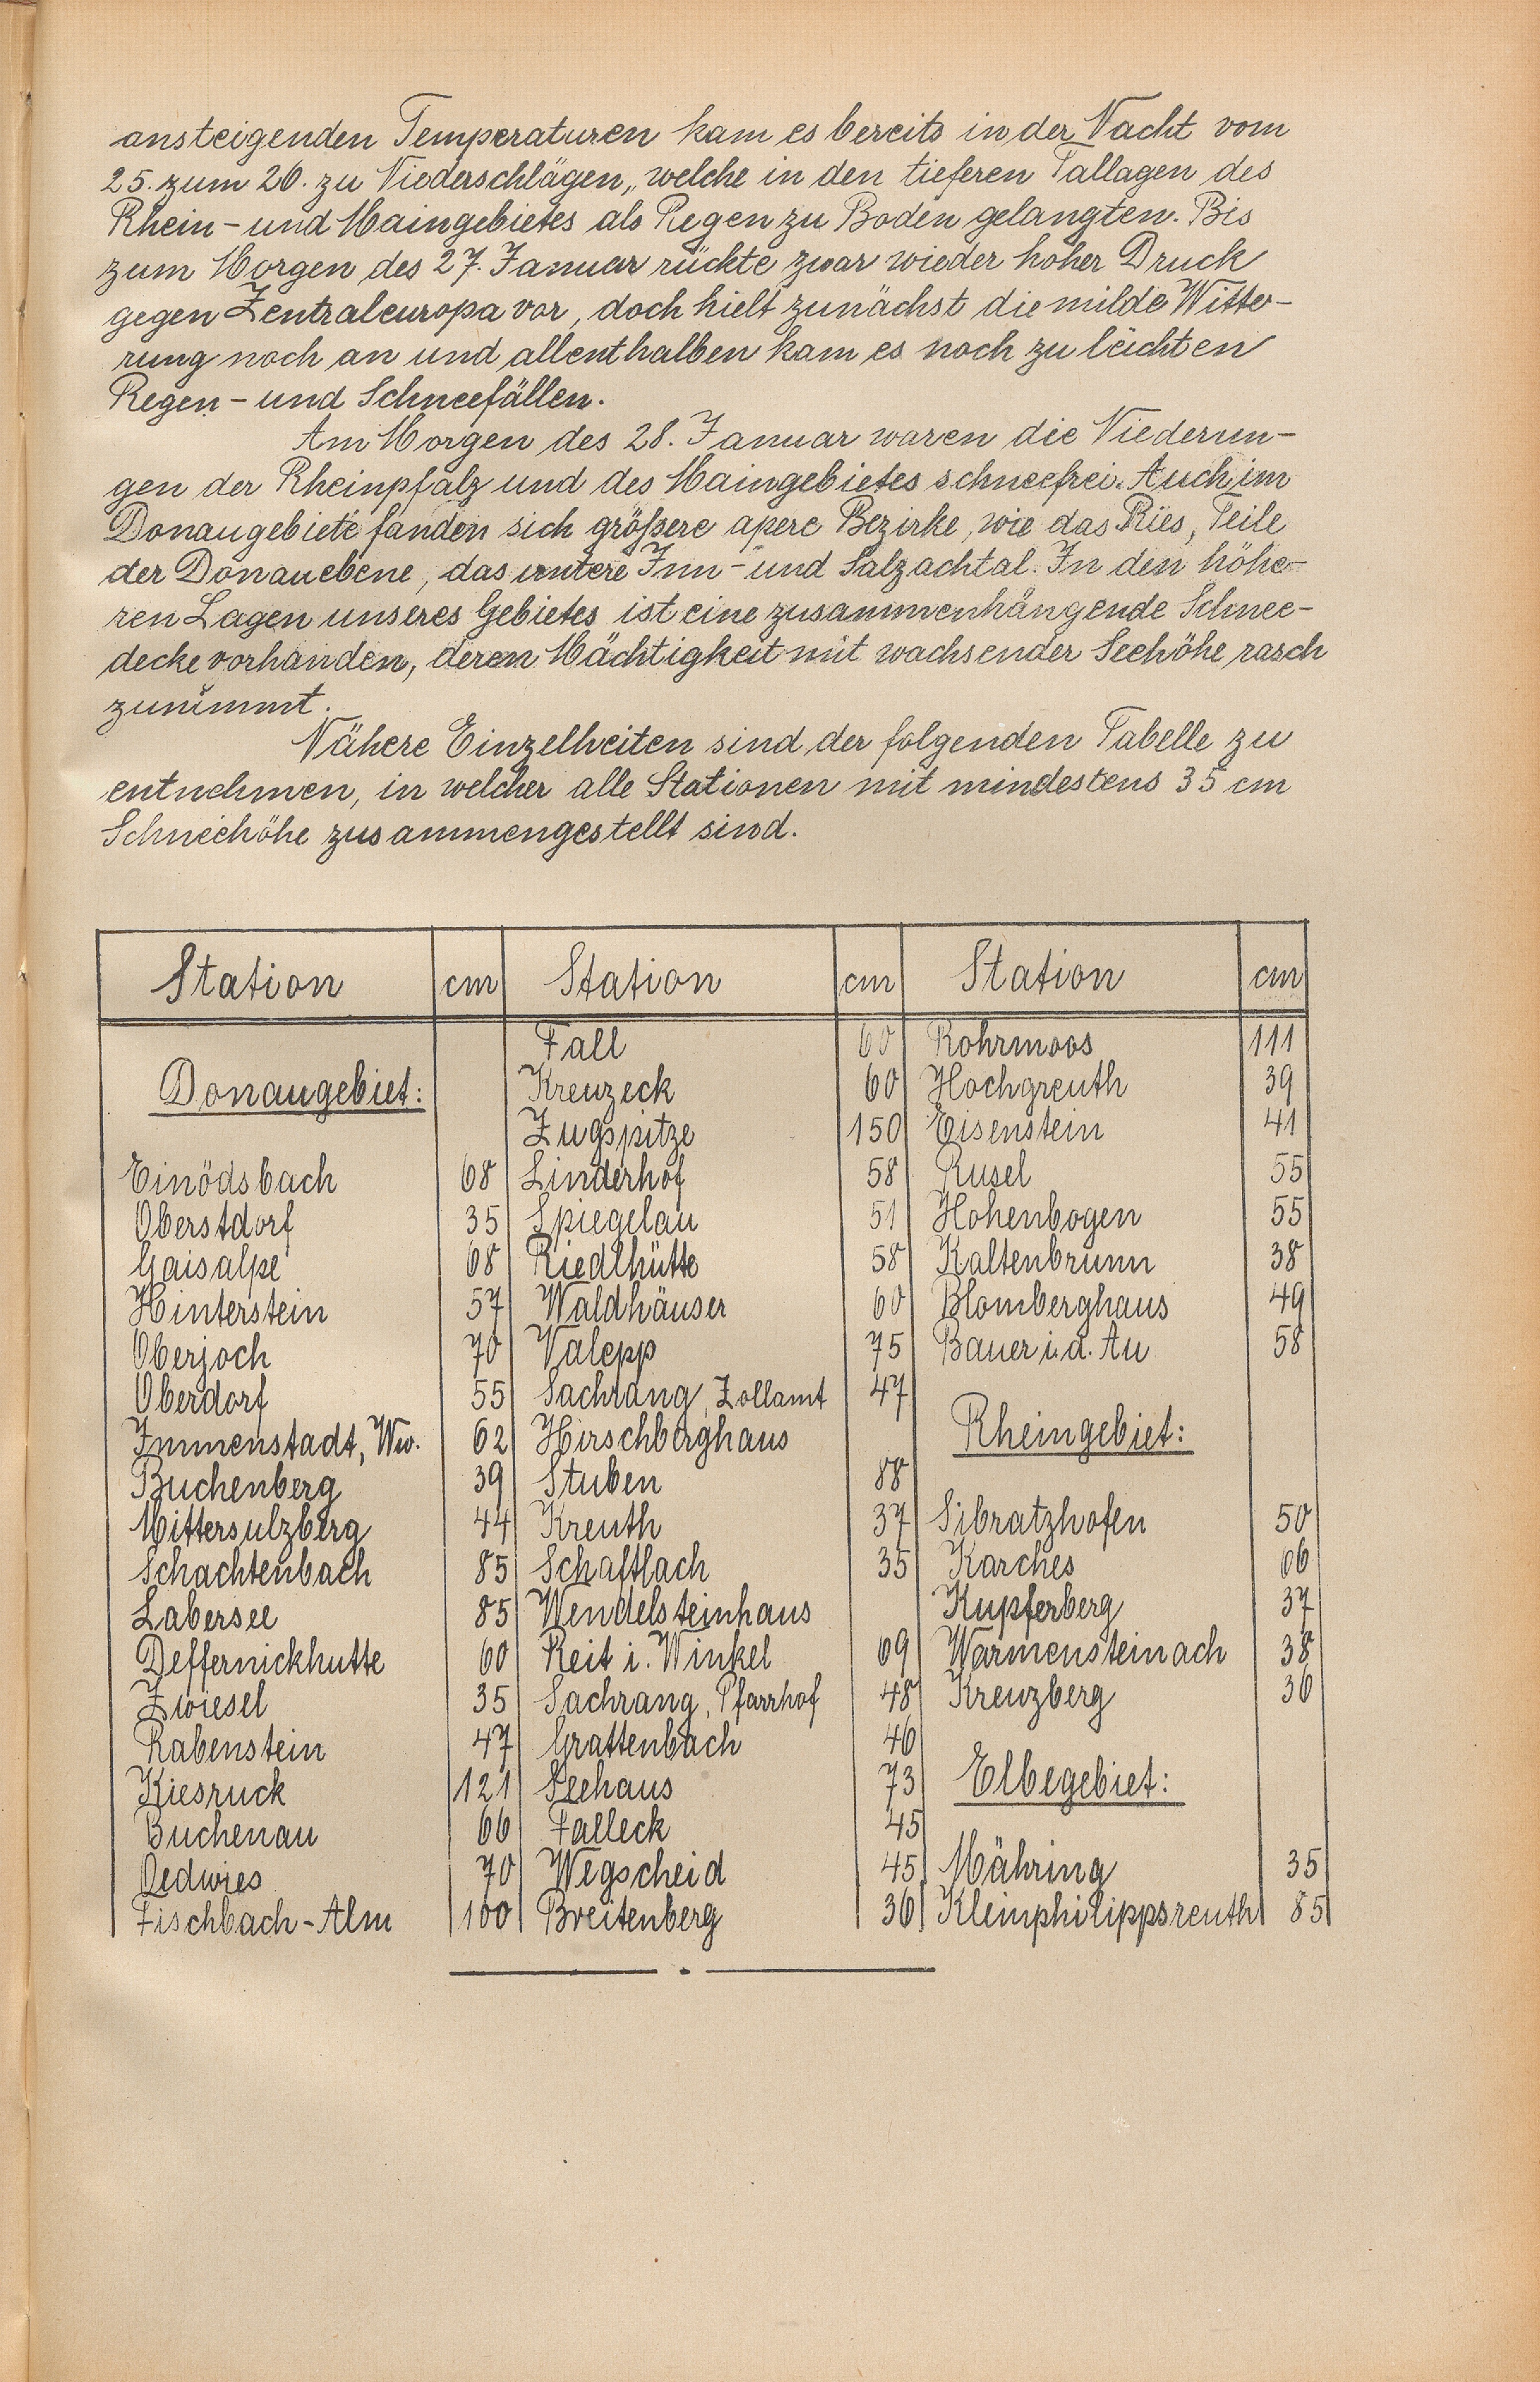 ansteigenden Temperaturen kam es bereits in der Nacht vom
25. zum 26. zu Niederschlägen, welche in den tieferen Tallagen des
Rhein- und Maingebietes als Regen zu Boden gelangten. Bis
zum Morgen des 27. Januar rückte zwar wieder hoher Druck
gegen Zentraleuropa vor, doch hielt zunächst die milde Witte-
rung noch an und allenthalben kam es noch zu leichten
Regen- und Schneefällen.
Am Morgen des 28. Januar waren die Niederun-
gen der Rheinpfalz und des Maingebietes schneefrei. Auch im
Donaugebiete fanden sich größere apere Bezirke, wie das Ries, Teile
der Donauebene, das untere Inn- und Salzachtal. In den höhe-
ren Lagen unseres Gebietes ist eine zusammenhängende Schnee-
decke vorhanden, deren Mächtigkeit mit wachsender Seehöhe rasch
zunimmt.
Nähere Einzelheiten sind der folgenden Tabelle zu
entnehmen, in welcher alle Stationen mit mindestens 35 cm
Schneehöhe zusammengestellt sind.
Station cm Station cm Station cm
Donaugebiet:
Einödsbach 68
Oberstdorf 35
Gaisalpe 68
Hinterstein 57
Oberjoch 70
Oberdorf 55
Immenstadt, Ww. 62
Buchenberg 39
Mittersulzberg 44
Schachtenbach 85
Labersee 85
Deffernickhutte 60
Zwiesel 35
Rabenstein 47
Kiesruck 121
Buchenau 66
Oedwies 70
Fischbach-Alm 100
Fall 60
Kreuzeck 60
Zugspitze 150
Linderhof 58
Spiegelau 51
Riedlhütte 58
Waldhäuser 60
Valepp 75
Sachrang, Zollamt 47
Hirschberghaus
Stuben 88
Kreuth 37
Schaftlach 35
Wendelsteinhaus
Reit i. Winkel 69
Sachrang, Pfarrhof 48
Grattenbach 46
Seehaus 73
Falleck 45
Wegscheid 45
Breitenberg 36
Rohrmoos 111
Hochgreuth 39
Eisenstein 41
Rusel 55
Hohenbogen 55
Kaltenbrunn 38
Blomberghaus 49
Bauer i. d. Au 58
Rheingebiet:
Sibratzhofen 50
Karches 66
Kupferberg 37
Warmensteinach 38
Kreuzberg 36
Elbegebiet:
Mähring 35
Kleinphilippsreuth 85